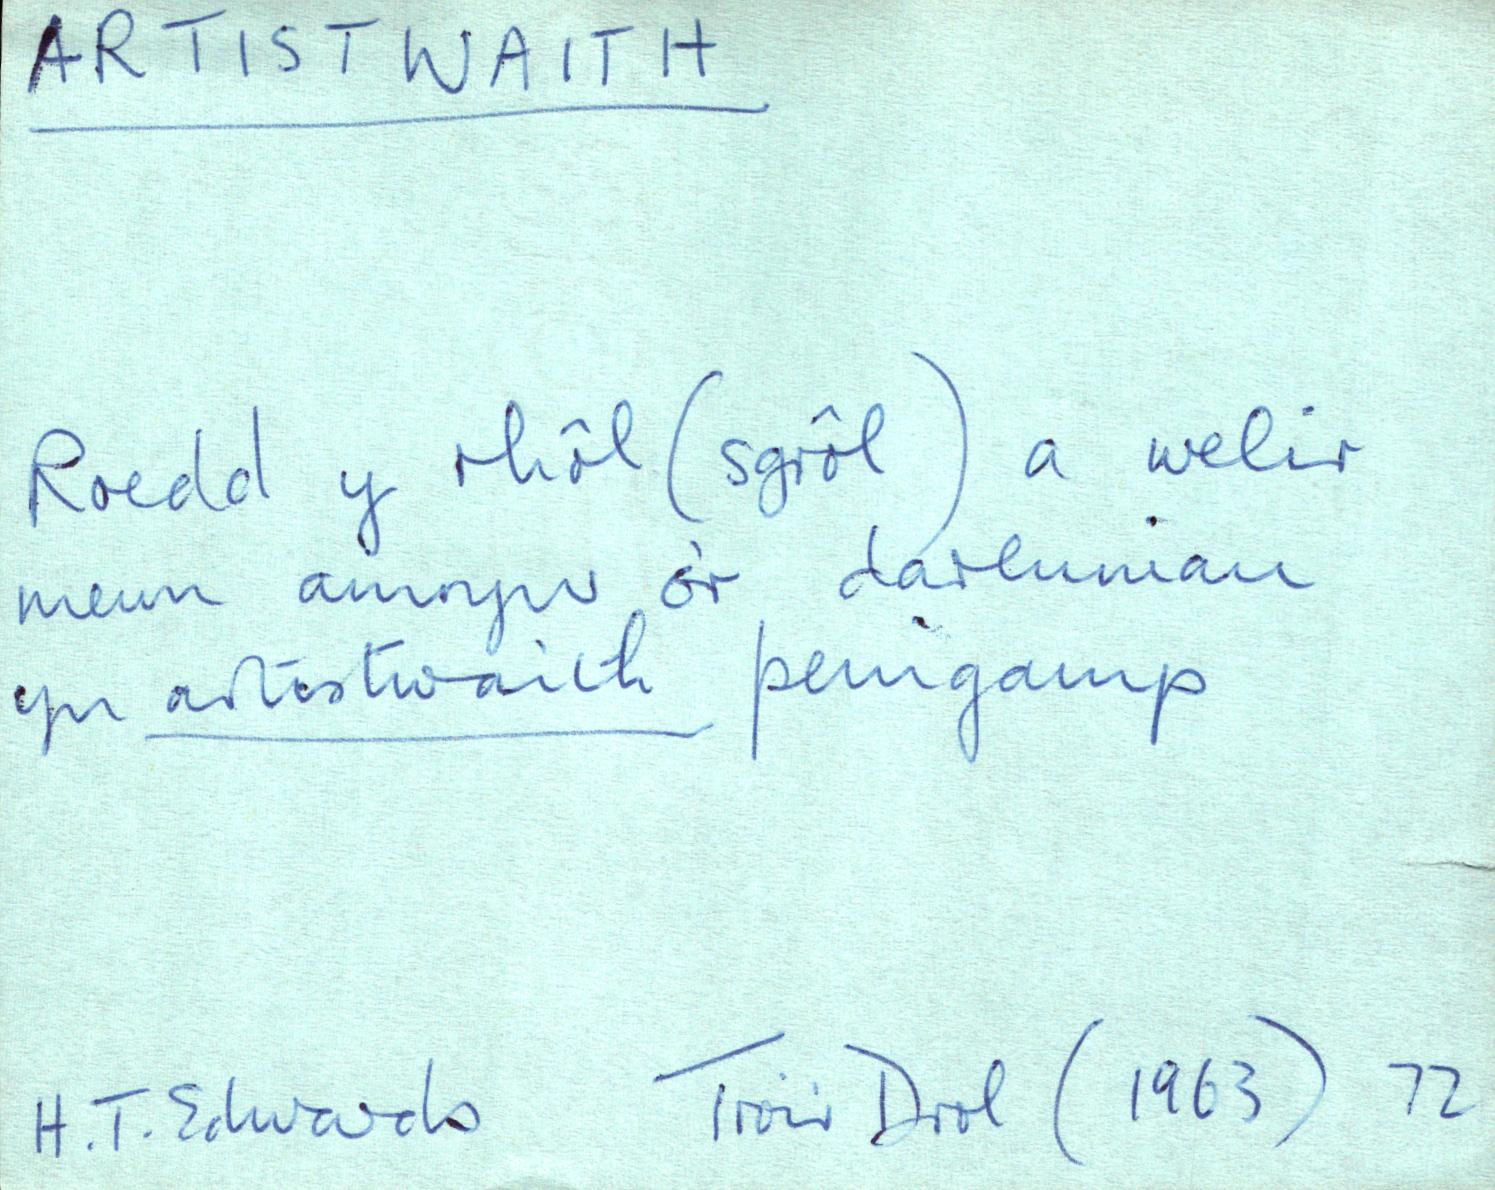 ARTISTWAITH
Roedd y rhôl (sgrôl) a welir
mewn amryw o'r darluniau
yn artistwaith penigamp
H.T. Edwards Troi'r Drol (1963) 72